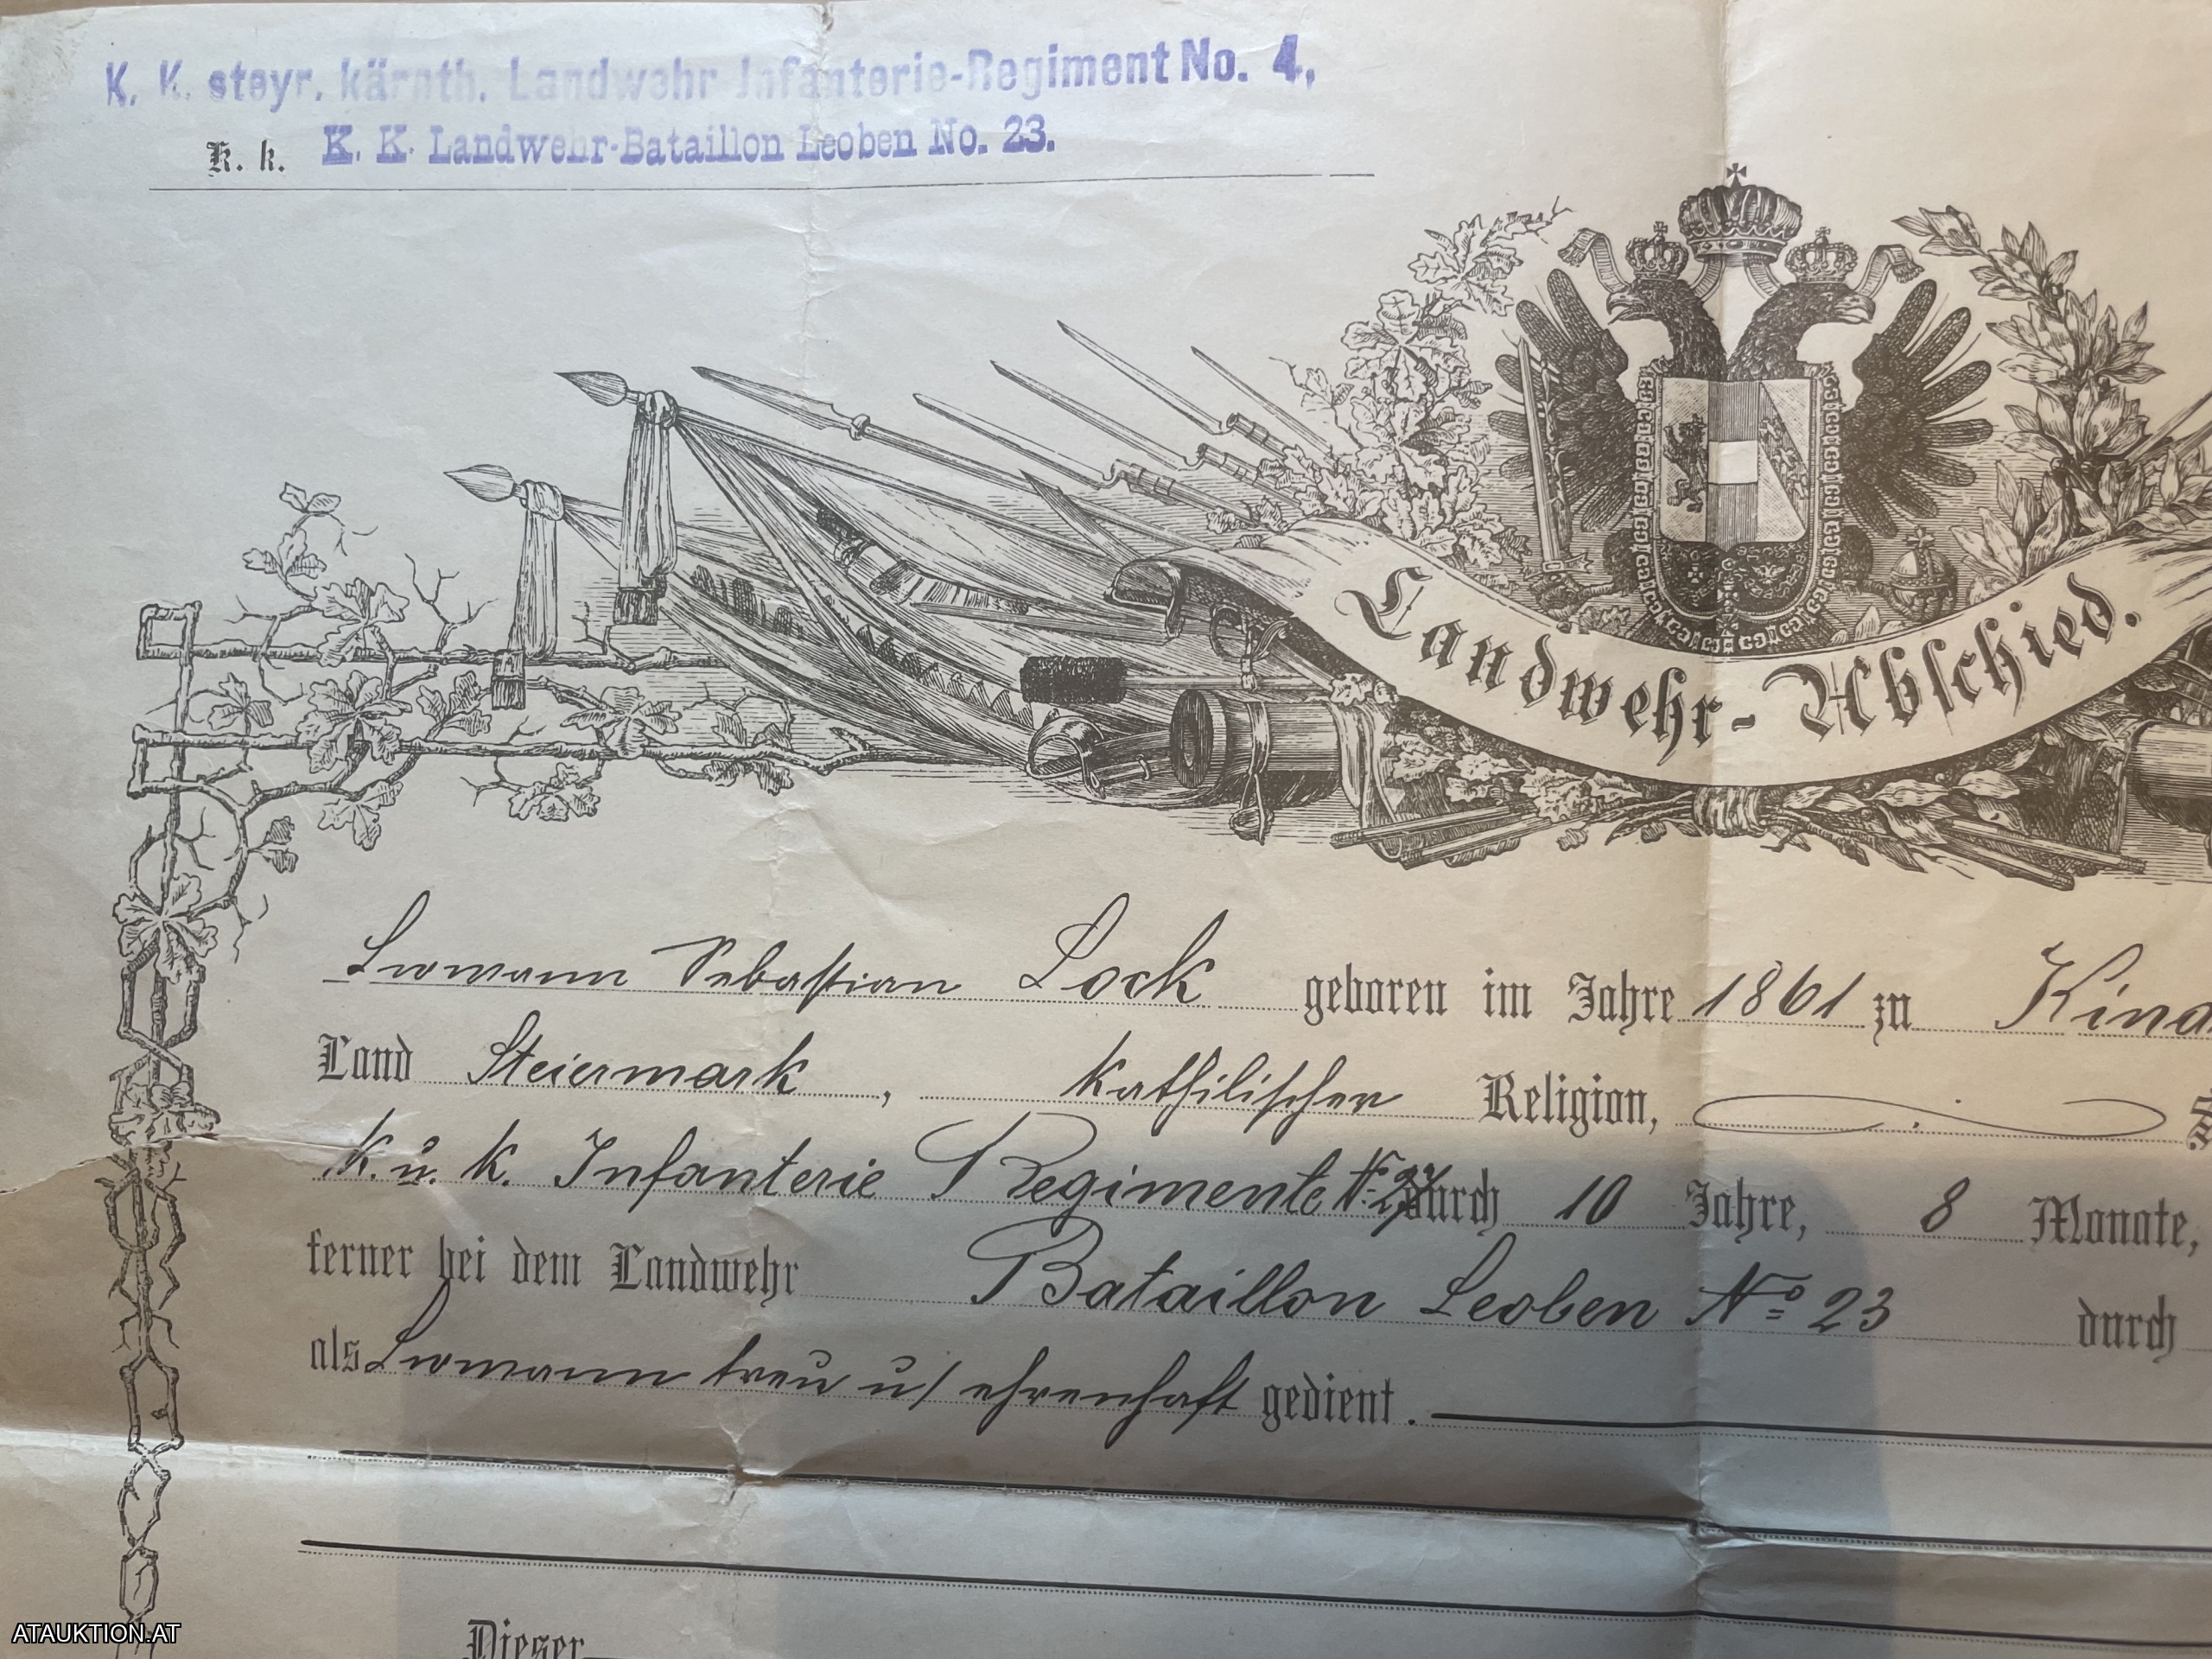 K. K. steyr. kärnth. Landwehr Infanterie-Regiment No. 4,
K. k. K. K. Landwehr-Bataillon Leoben No. 23.
Landwehr-Abschied.
Sebastian Lock geboren im Jahre 1861 zu Kind
Land Steiermark, kathilischer Religion,
k. u. k. Infanterie Regimente No 27 durch 10 Jahre, 8 Monate,
ferner bei dem Landwehr Bataillon Leoben No 23 durch
als treu u/ ehrenhaft gedient.
Dieser
ATAUKTION.AT